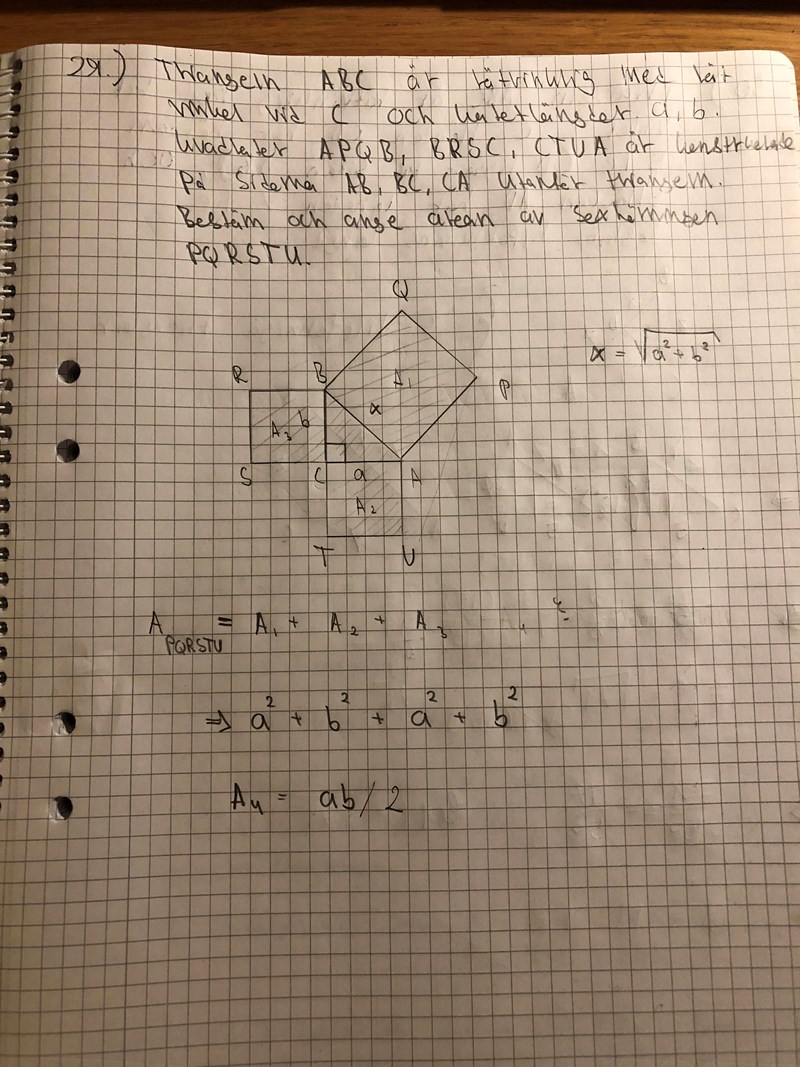 29.) Triangeln ABC är rätvinklig med rät
vinkel vid C och katetlängder a, b.
Kvadrater APQB, BRSC, CTUA är konstruerade
på sidorna AB, BC, CA utanför triangeln.
Bestäm och ange arean av sexhörningen
PQRSTU.
Q
x = √a² + b²
R B A₁ P
x
A₃ b
S C a A
A₂
T U
A PQRSTU = A₁ + A₂ + A₃
⇒ a² + b² + a² + b²
A₄ = ab/2